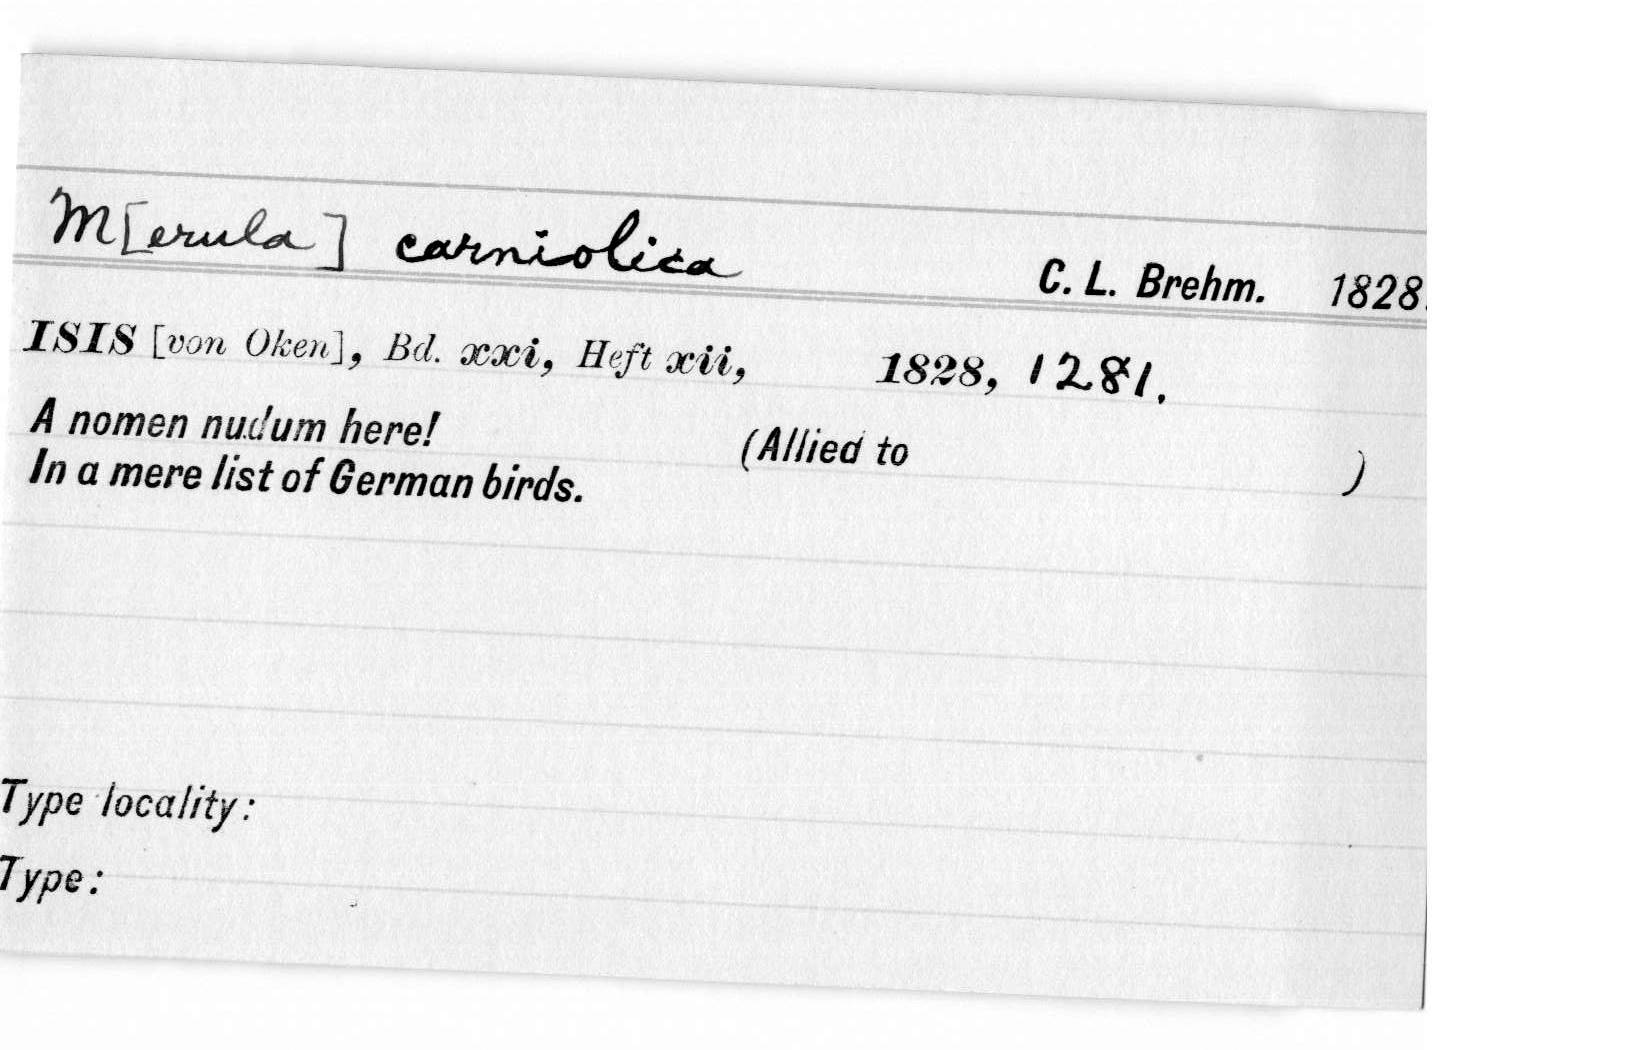 M[erula] carniolica C. L. Brehm. 1828.
ISIS [von Oken], Bd. xxi, Heft xii, 1828, 1281.
A nomen nudum here! (Allied to )
In a mere list of German birds.
Type locality:
Type: